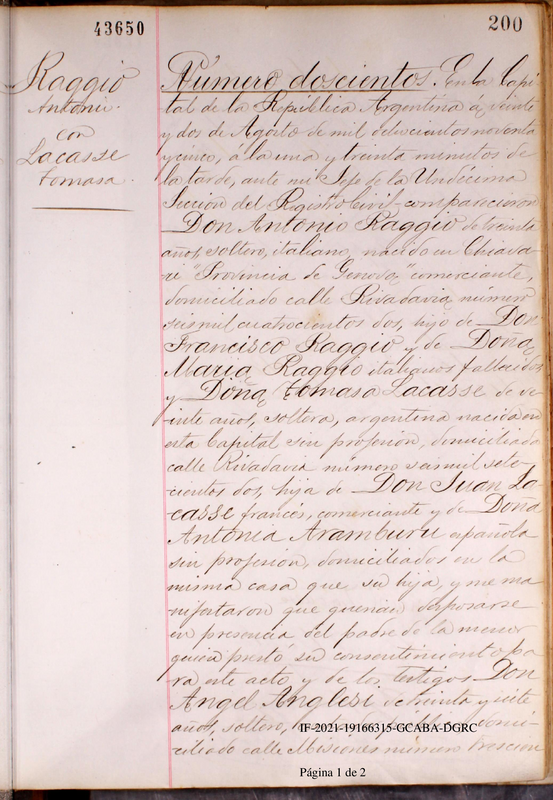 43650
200
Raggio
Antonio
con
Lacasse
Tomasa
Número doscientos. En la Capi-
tal de la República Argentina a veinte
y dos de Agosto de mil ochocientos noventa
y cinco, a la una y treinta minutos de
la tarde, ante mi Jefe de la Undécima
Sección del Registro Civil comparecieron
Don Antonio Raggio de treinta
años, soltero, italiano, nacido en Chiava-
ri "Provincia de Genova," comerciante,
domiciliado calle Rivadavia número
seis mil cuatrocientos dos, hijo de Don
Francisco Raggio y de Doña
Maria Raggio italianos fallecidos
y Doña Tomasa Lacasse de ve-
inte años, soltera, argentina nacida en
esta Capital sin profesion, domiciliada
calle Rivadavia número seis mil sete-
cientos dos, hija de Don Juan La-
casse francés, comerciante y de Doña
Antonia Aramburu española
sin profesion, domiciliados en la
misma casa que su hija, y me ma
nifestaron que querian desposarse
en presencia del padre de la menor
quien prestó su consentimiento pa
ra este acto y de los testigos Don
Angel Anglesi de treinta y siete
años, soltero, domi-
ciliado calle Misiones número trescien
IF-2021-19166315-GCABA-DGRC
Página 1 de 2